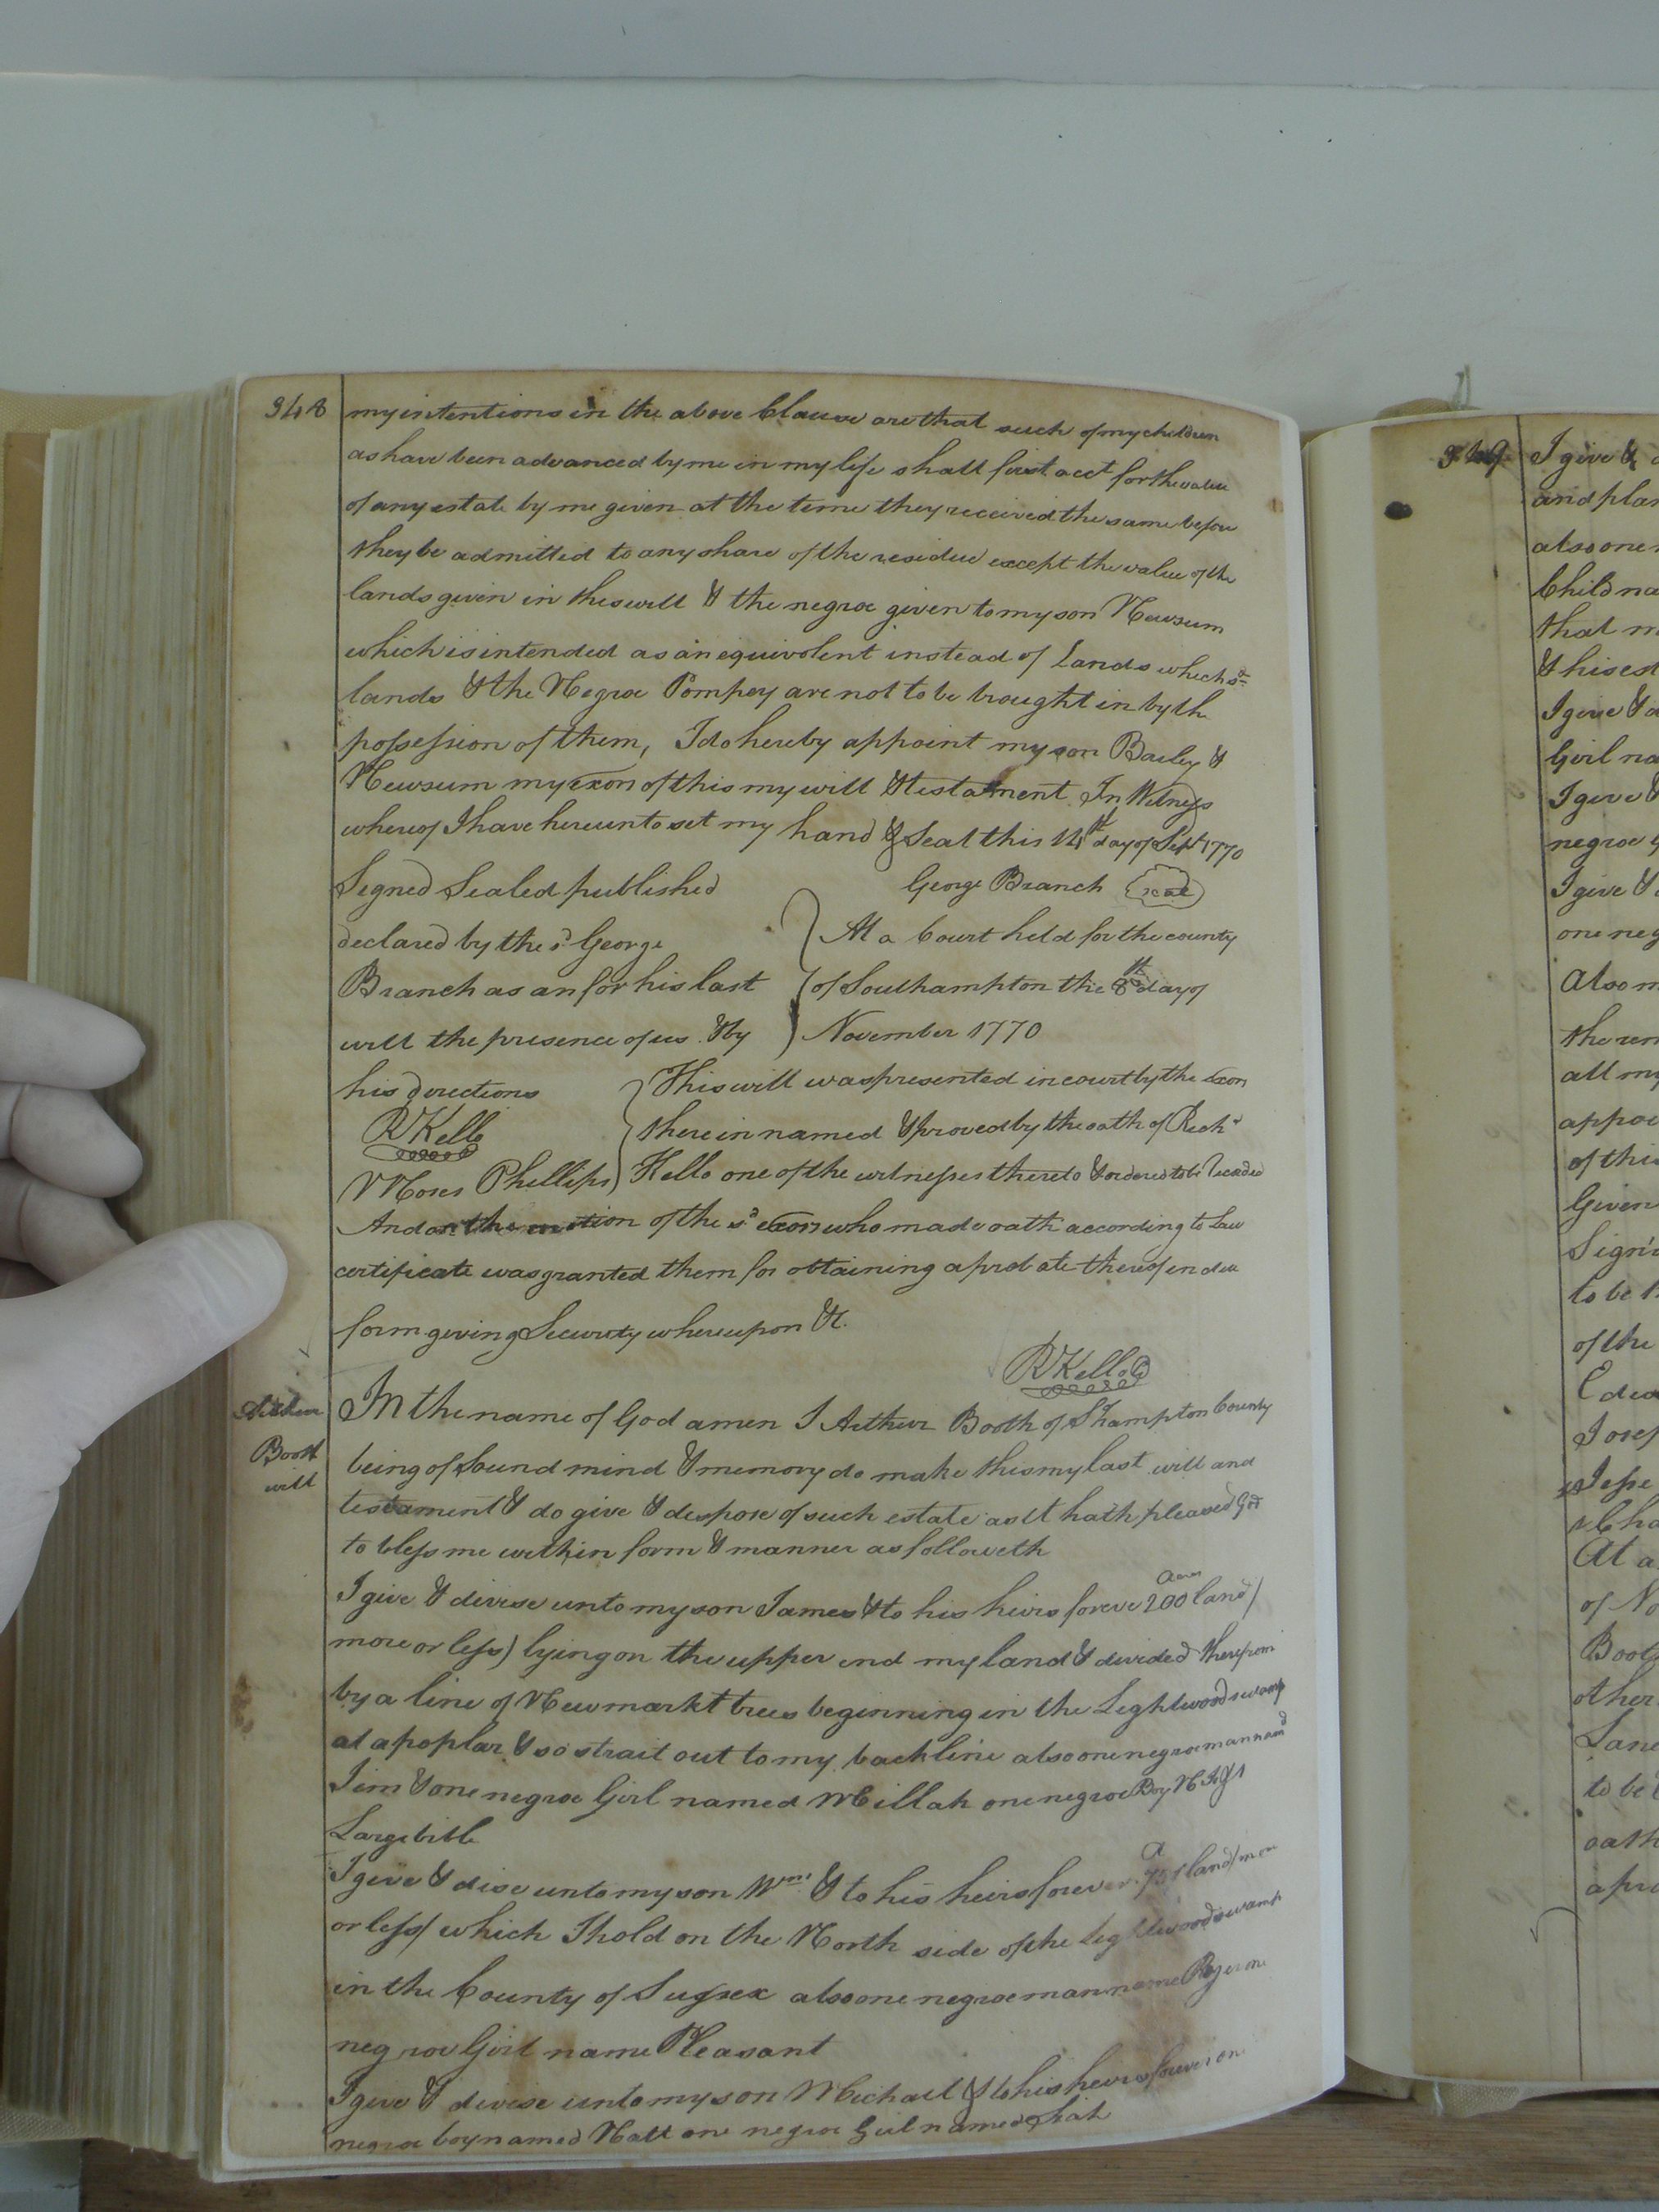 348
my intentions in the above Clause are that such of my children
as have been advanced by me in my life shall first acct for the value
of any estate by me given at the time they received the same before
they be admitted to any share of the residue except the value of the
lands given in this will & the negroe given to my son Newsum
which is intended as an equivolent instead of Lands which sd
lands & the Negroe Pompey are not to be brought in by th
possession of them, I do hereby appoint my son Bailey &
Newsum my exon of this my will & testament In Witness
whereof I have hereunto set my hand & Seal this 14th day of Sept 1770
Signed Sealed published
George Branch seal
declared by the sd George
Branch as an for his last
will the presence of us & by
his directions
RKello
Moses Phillips
At a Court held for the county
of Southampton the 8th day of
November 1770
This will was presented in court by the exon
therein named & proved by the oath of Richd
Kello one of the witnesses thereto & ordered to be Recorded
And on the motion of the sd exors who made oath according to Law
certificate was granted them for obtaining a probate thereof in due
form giving Security whereupon &c.
RKello
Arthur
Booth
will
In the name of God amen I Arthur Booth of S Hampton County
being of Sound mind & memory do make this my last will and
testament & do give & dispose of such estate as it hath pleased God
to bless me with in form & manner as followeth
I give & divise unto my son James & to his heirs foreve 200 acres land /
more or less) lying on the upper end my land & divided therefrom
by a line of New markt trees beginning in the Lightwood swamp
at a poplar & so strait out to my back line also one negroe man namd
Jim & one negroe Girl named Millah one negroe Boy
Large bible
I give & dise unto my son Wm & to his heirs forever land / more
or less / which I hold on the North side of the Lightwood swamp
in the County of Sussex also one negroe man name Roger one
negroe Girl name Pleasant
I give & divise unto my son Michael & to his heirs forever on
negroe boy named Natt one negroe Girl named
349
I give &
and plan
also one
Child na
that m
& his est
I give & d
Girl na
I give &
negroe g
I give &
one neg
Also m
the rem
all my
appoi
of this
Given
Sign'd
to be h
of the
Edw
Josep
Jesse
Cha
At a
of No
Boot
other
Lane
to be
oath
apro